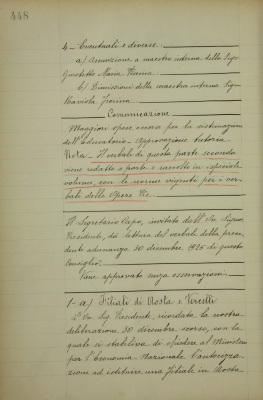 448
4 - Eventuali e diverse.
a) Assunzione a maestra interna della Sig.
Maria
b) Dimissioni della maestra interna Sig.
Comunicazione
Maggiori opere occorse per la sistemazione
dell'Educatorio - Approvazione tutoria.
Nota - Il verbale di questa parte seconda
viene redatto a parte e raccolto in speciale
volume, con le norme vigenti per i ver-
bali delle Opere Pie.
Il Segretario Capo, invitato dall'On. Signor
Presidente, dà lettura del verbale della prece-
dente adunanza 30 dicembre 1925 di questo
Consiglio.
Viene approvato senza osservazioni.
1 - a) Filiali di Aosta e Vercelli
L'On. Sig. Presidente, ricordata la nostra
deliberazione 30 dicembre scorso, con la
quale si stabiliva di chiedere al Ministero
per l'Economia Nazionale l'autorizza-
zione ad istituire una Filiale in Aosta